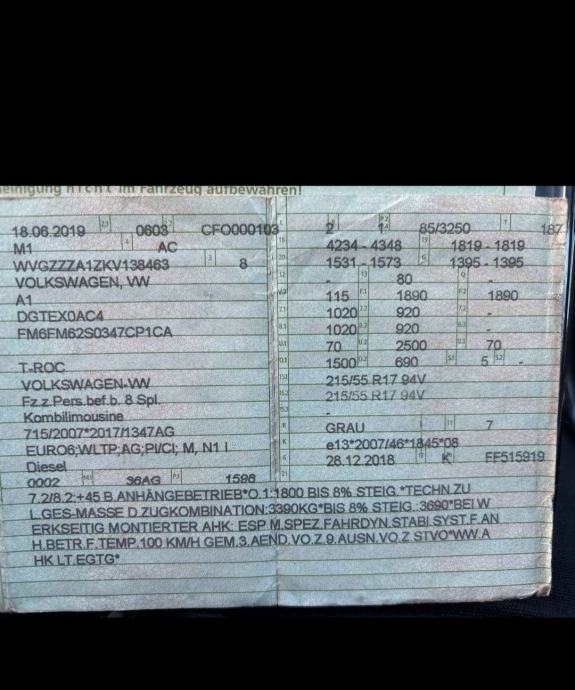 einigung nicht im Fahrzeug aufbewahren!
18.06.2019 0603 CFO000103
M1 AC
WVGZZZA1ZKV138463 8
VOLKSWAGEN, VW
A1
DGTEX0AC4
FM6FM62S0347CP1CA
T-ROC
VOLKSWAGEN-VW
Fz.z.Pers.bef.b. 8 Spl.
Kombilimousine
715/2007*2017/1347AG
EURO6;WLTP;AG;PI/CI; M, N1 I
Diesel
0002 36AG 1598
2 1 85/3250 187
4234 - 4348 1819 - 1819
1531 - 1573 1395 - 1395
- 80 -
115 1890 1890
1020 920 -
1020 920 -
70 2500 70
1500 690 5 -
215/55 R17 94V
215/55 R17 94V
-
GRAU 7
e13*2007/46*1845*08
28.12.2018 K FF515919
7.2/8.2:+45 B.ANHÄNGEBETRIEB*O.1:1800 BIS 8% STEIG.*TECHN.ZU
L.GES-MASSE D.ZUGKOMBINATION:3390KG*BIS 8% STEIG.:3690*BEI W
ERKSEITIG MONTIERTER AHK: ESP M.SPEZ.FAHRDYN.STABI.SYST.F.AN
H.BETR.F.TEMP.100 KM/H GEM.3.AEND.VO.Z.9.AUSN.VO.Z STVO*WW.A
HK LT.EGTG*